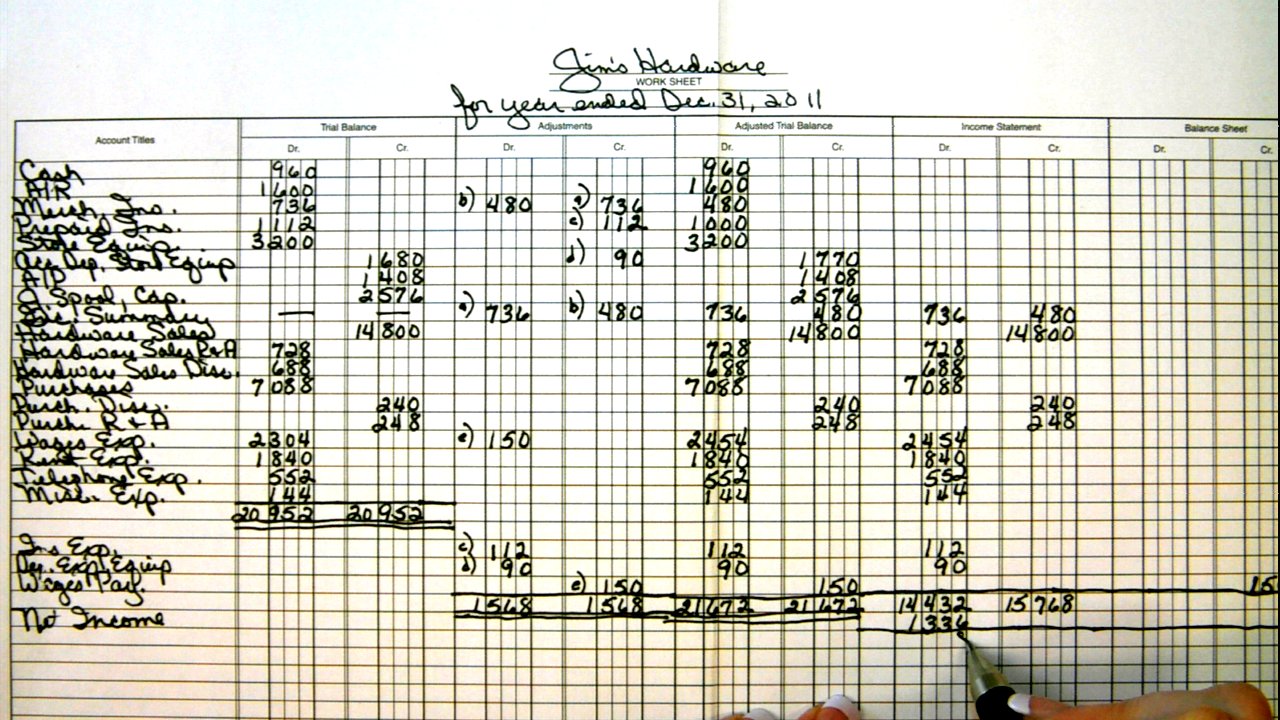 Jim's Hardware
WORK SHEET
for year ended Dec. 31, 2011
Account Titles Trial Balance Adjustments Adjusted Trial Balance Income Statement Balance Sheet
Dr. Cr. Dr. Cr. Dr. Cr. Dr. Cr. Dr. Cr.
Cash 960 960
A/R 1600 1600
Merch. Ins. 736 b) 480 a) 736 480
Prepaid Ins. 1112 c) 112 1000
Store Equip. 3200 3200
Acc. Dep. Store Equip 1680 d) 90 1770
A/P 1408 1408
J. Spool, Cap. 2576 2576
Inc. Summary — — a) 736 b) 480 736 480 736 480
Hardware Sales 14800 14800 14800
Hardware Sales R+A 728 728 728
Hardware Sales Disc. 688 688 688
Purchases 7088 7088 7088
Purch. Disc. 240 240 240
Purch. R + A 248 248 248
Wages Exp. 2304 e) 150 2454 2454
Rent Exp. 1840 1840 1840
Telephone Exp. 552 552 552
Misc. Exp. 144 144 144
20952 20952
Ins Exp. c) 112 112 112
Dep. Exp. Equip d) 90 90 90
Wages Pay. e) 150 150 15
1568 1568 21672 21672 14432 15768
Net Income 1336